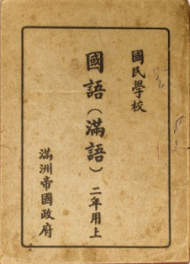 國民學校
國語(滿語) 二年用上
滿洲帝國政府